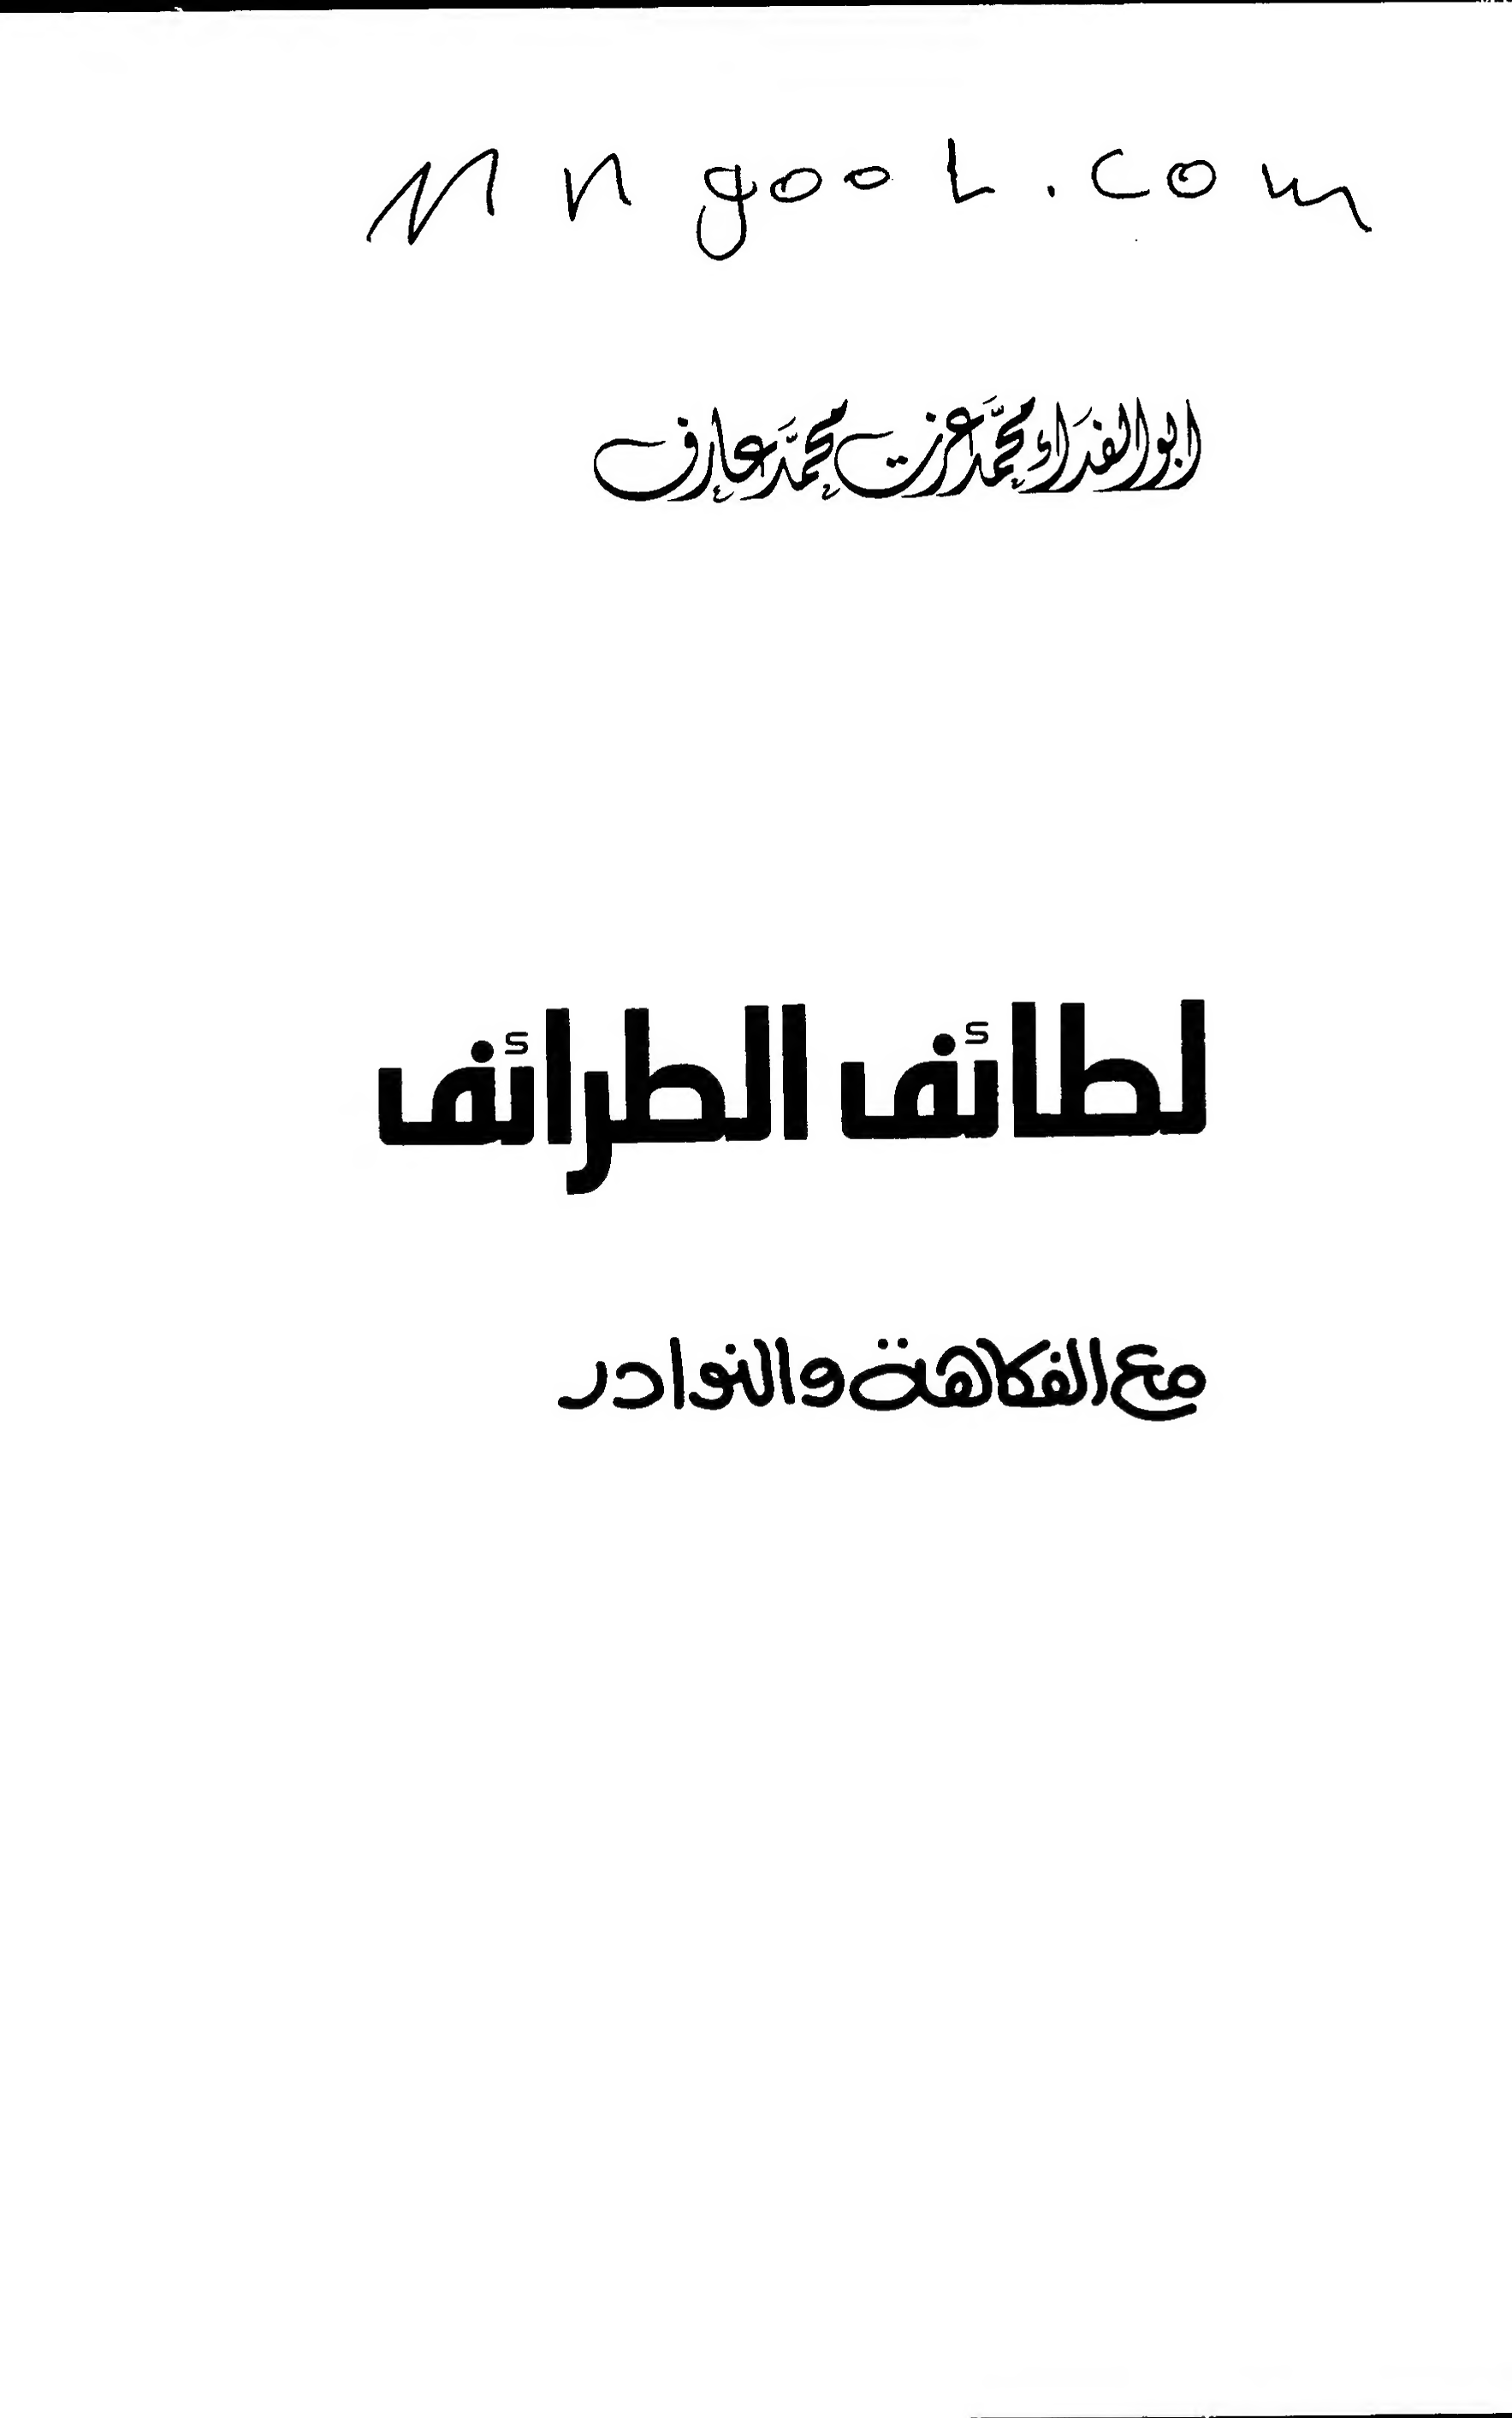 Mngool.com
ابو الفداء محمد عزت محمد عارف
لطائف الطرائف
مع الفكاهة والنوادر